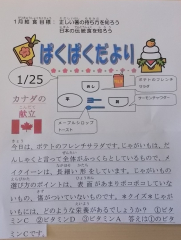 1月給食目標
正しい箸の持ち方を知ろう
日本の伝統食を知ろう
ぱくぱくだより
1/25
カナダの
献立
ポテトのフレンチ
サラダ
サーモンチャウダー
メープルシロップ
トースト
今日は、ポテトのフレンチサラダです。じゃがいもは、だ
んしゃくと言って全体がふっくらとしているものや、メ
イクイーンは、長細い形をしています。じゃがいもの
選び方のポイントは、表面があまりボコボコしていない
もの、傷がついていないものです。*クイズ*じゃが
いもには、どのような栄養があるでしょうか？ ①ビタ
ミンC ②ビタミンD ③ビタミンA 答えは①のビタ
ミンCです。